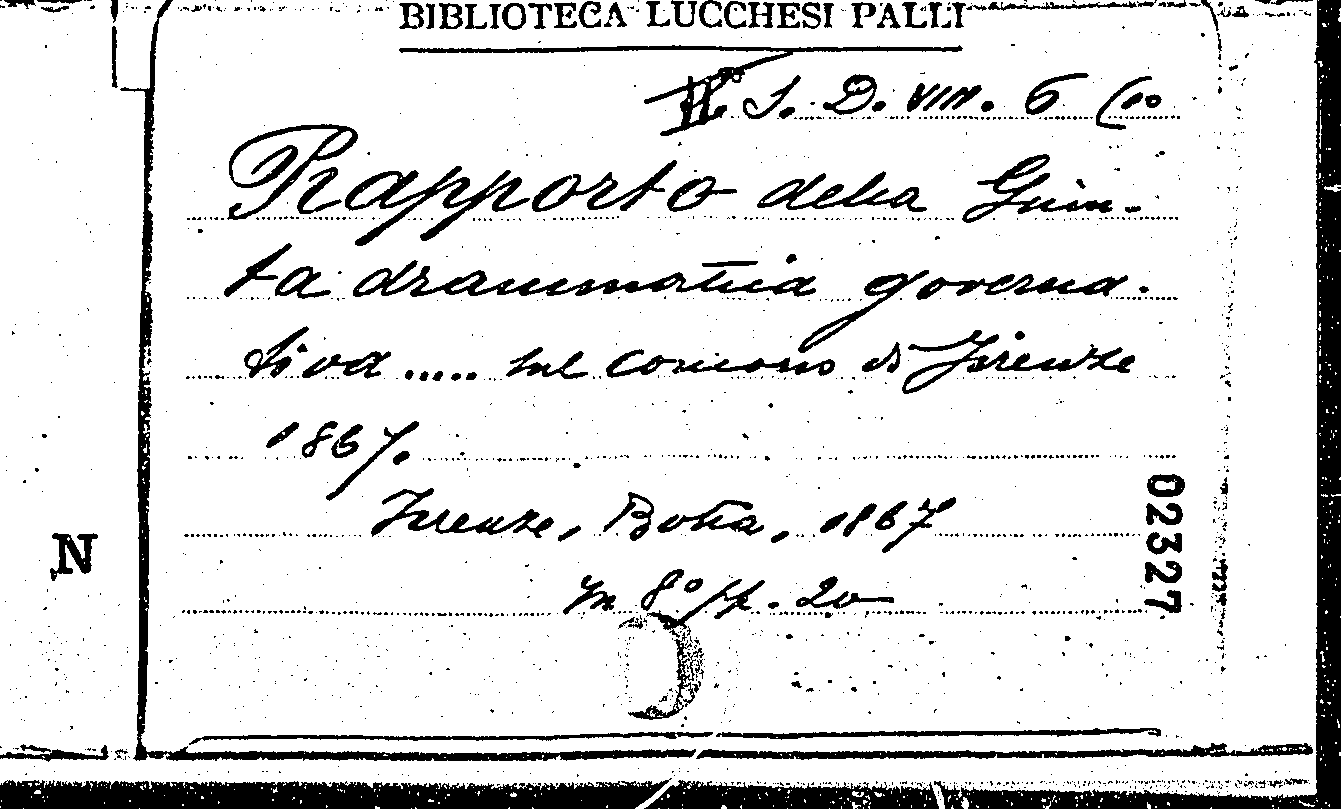 BIBLIOTECA LUCCHESI PALLI
S. D. VIII. 6 (10
Rapporto della Giun-
ta drammatica governa-
tiva ..... sul concorso di Firenze
1867.
Firenze, Botta, 1867
In 8° pp. 20
02327
N